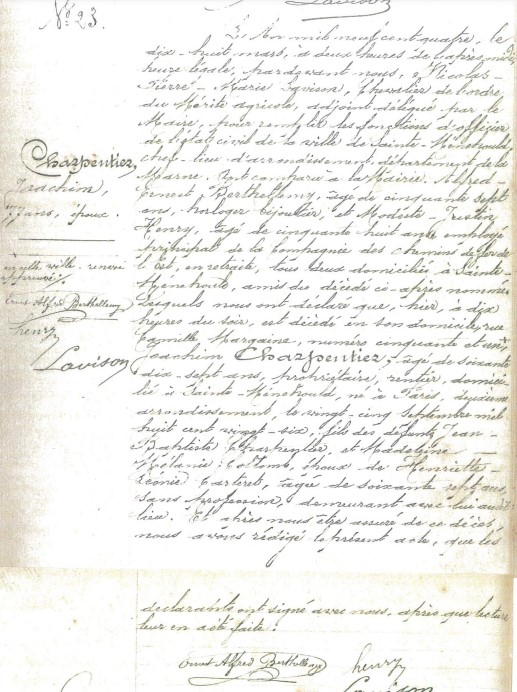 Lavison
N° 23.
L'An mil neuf cent quatre, le
dix-huit mars, à deux heures de l'après-midi
heure légale, pardevant nous, Nicolas-
Pierre-Marie Lavison, Chevalier de l'ordre
du Mérite agricole, adjoint délégué par le
Maire, pour remplir les fonctions d'officier
de l'état civil de la ville de Sainte-Ménehould,
chef-lieu d'arrondissement, département de la
Marne. Ont comparu à la Mairie. Alfred-
Ernest Berthellemy, âgé de cinquante sept
ans, horloger bijoutier, et Modeste-Justin
Henry, âgé de cinquante huit ans employé
principal de la Compagnie des chemins de fer de
l'Est, en retraite, tous deux domiciliés à Sainte-
Menehould, amis du décédé ci-après nommé
lesquels nous ont déclaré que, hier, à dix
heures du soir, est décédé en son domicile, rue
Camille Margaine, numéro cinquante et un,
Joachim Charpentier, âgé de soixante
dix-sept ans, propriétaire, rentier, domici-
lié à Sainte-Ménehould, né à Paris, deuxième
arrondissement, le vingt-cinq Septembre mil
huit cent vingt-six, fils des défunts Jean-
Baptiste Charpentier, et Madeleine
Mélanie Collomb, époux de Henriette-
Léonie Carteret, âgée de soixante sept ans,
sans profession, demeurant avec lui audit
lieu. Et après nous être assuré de ce décès,
nous avons rédigé le présent acte, que les
Charpentier,
Joachim,
77 ans, époux.
en cette ville. renvoi
approuvé.
Ernest Alfred Berthellemy
henry
Lavison
déclarants ont signé avec nous, après que lecture
leur en a été faite.
Ernest Alfred Berthellemy henry
Lavison